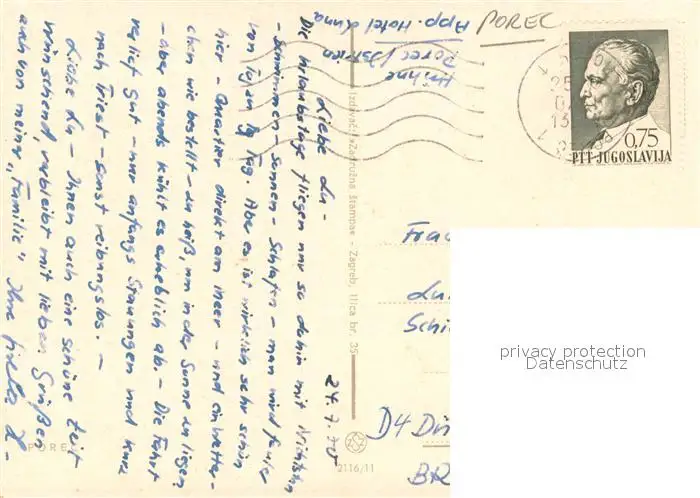 App. Hotel Luna
Porec/Istrien
Höhne
POREC
24.7.70
Liebe Lu -
Die Urlaubstage fliegen nur so dahin mit Nichtstun
- Schwimmen - Sonnen - Schlafen - man wird fauler
von Tag zu Tag. Aber es ist wirklich sehr schön
hier - Quartier direkt am Meer - und ein Wetter-
chen wie bestellt - zu heiß, um in der Sonne zu liegen
- aber abends kühlt es erheblich ab. - Die Fahrt
verlief gut - nur anfangs Stauungen und kurz
nach Triest - sonst reibungslos. -
Liebe Lu - Ihnen auch eine schöne Zeit
wünschend, verbleibt mit lieben Grüßen
auch von meiner "Familie" Ihre
POREČ
Izdavač: »Zadružna štampa« - Zagreb, Ilica br. 35
2116/11
0,75
PTT JUGOSLAVIJA
Frau
Lu
Schi
D4 Dü
BR
privacy protection
Datenschutz